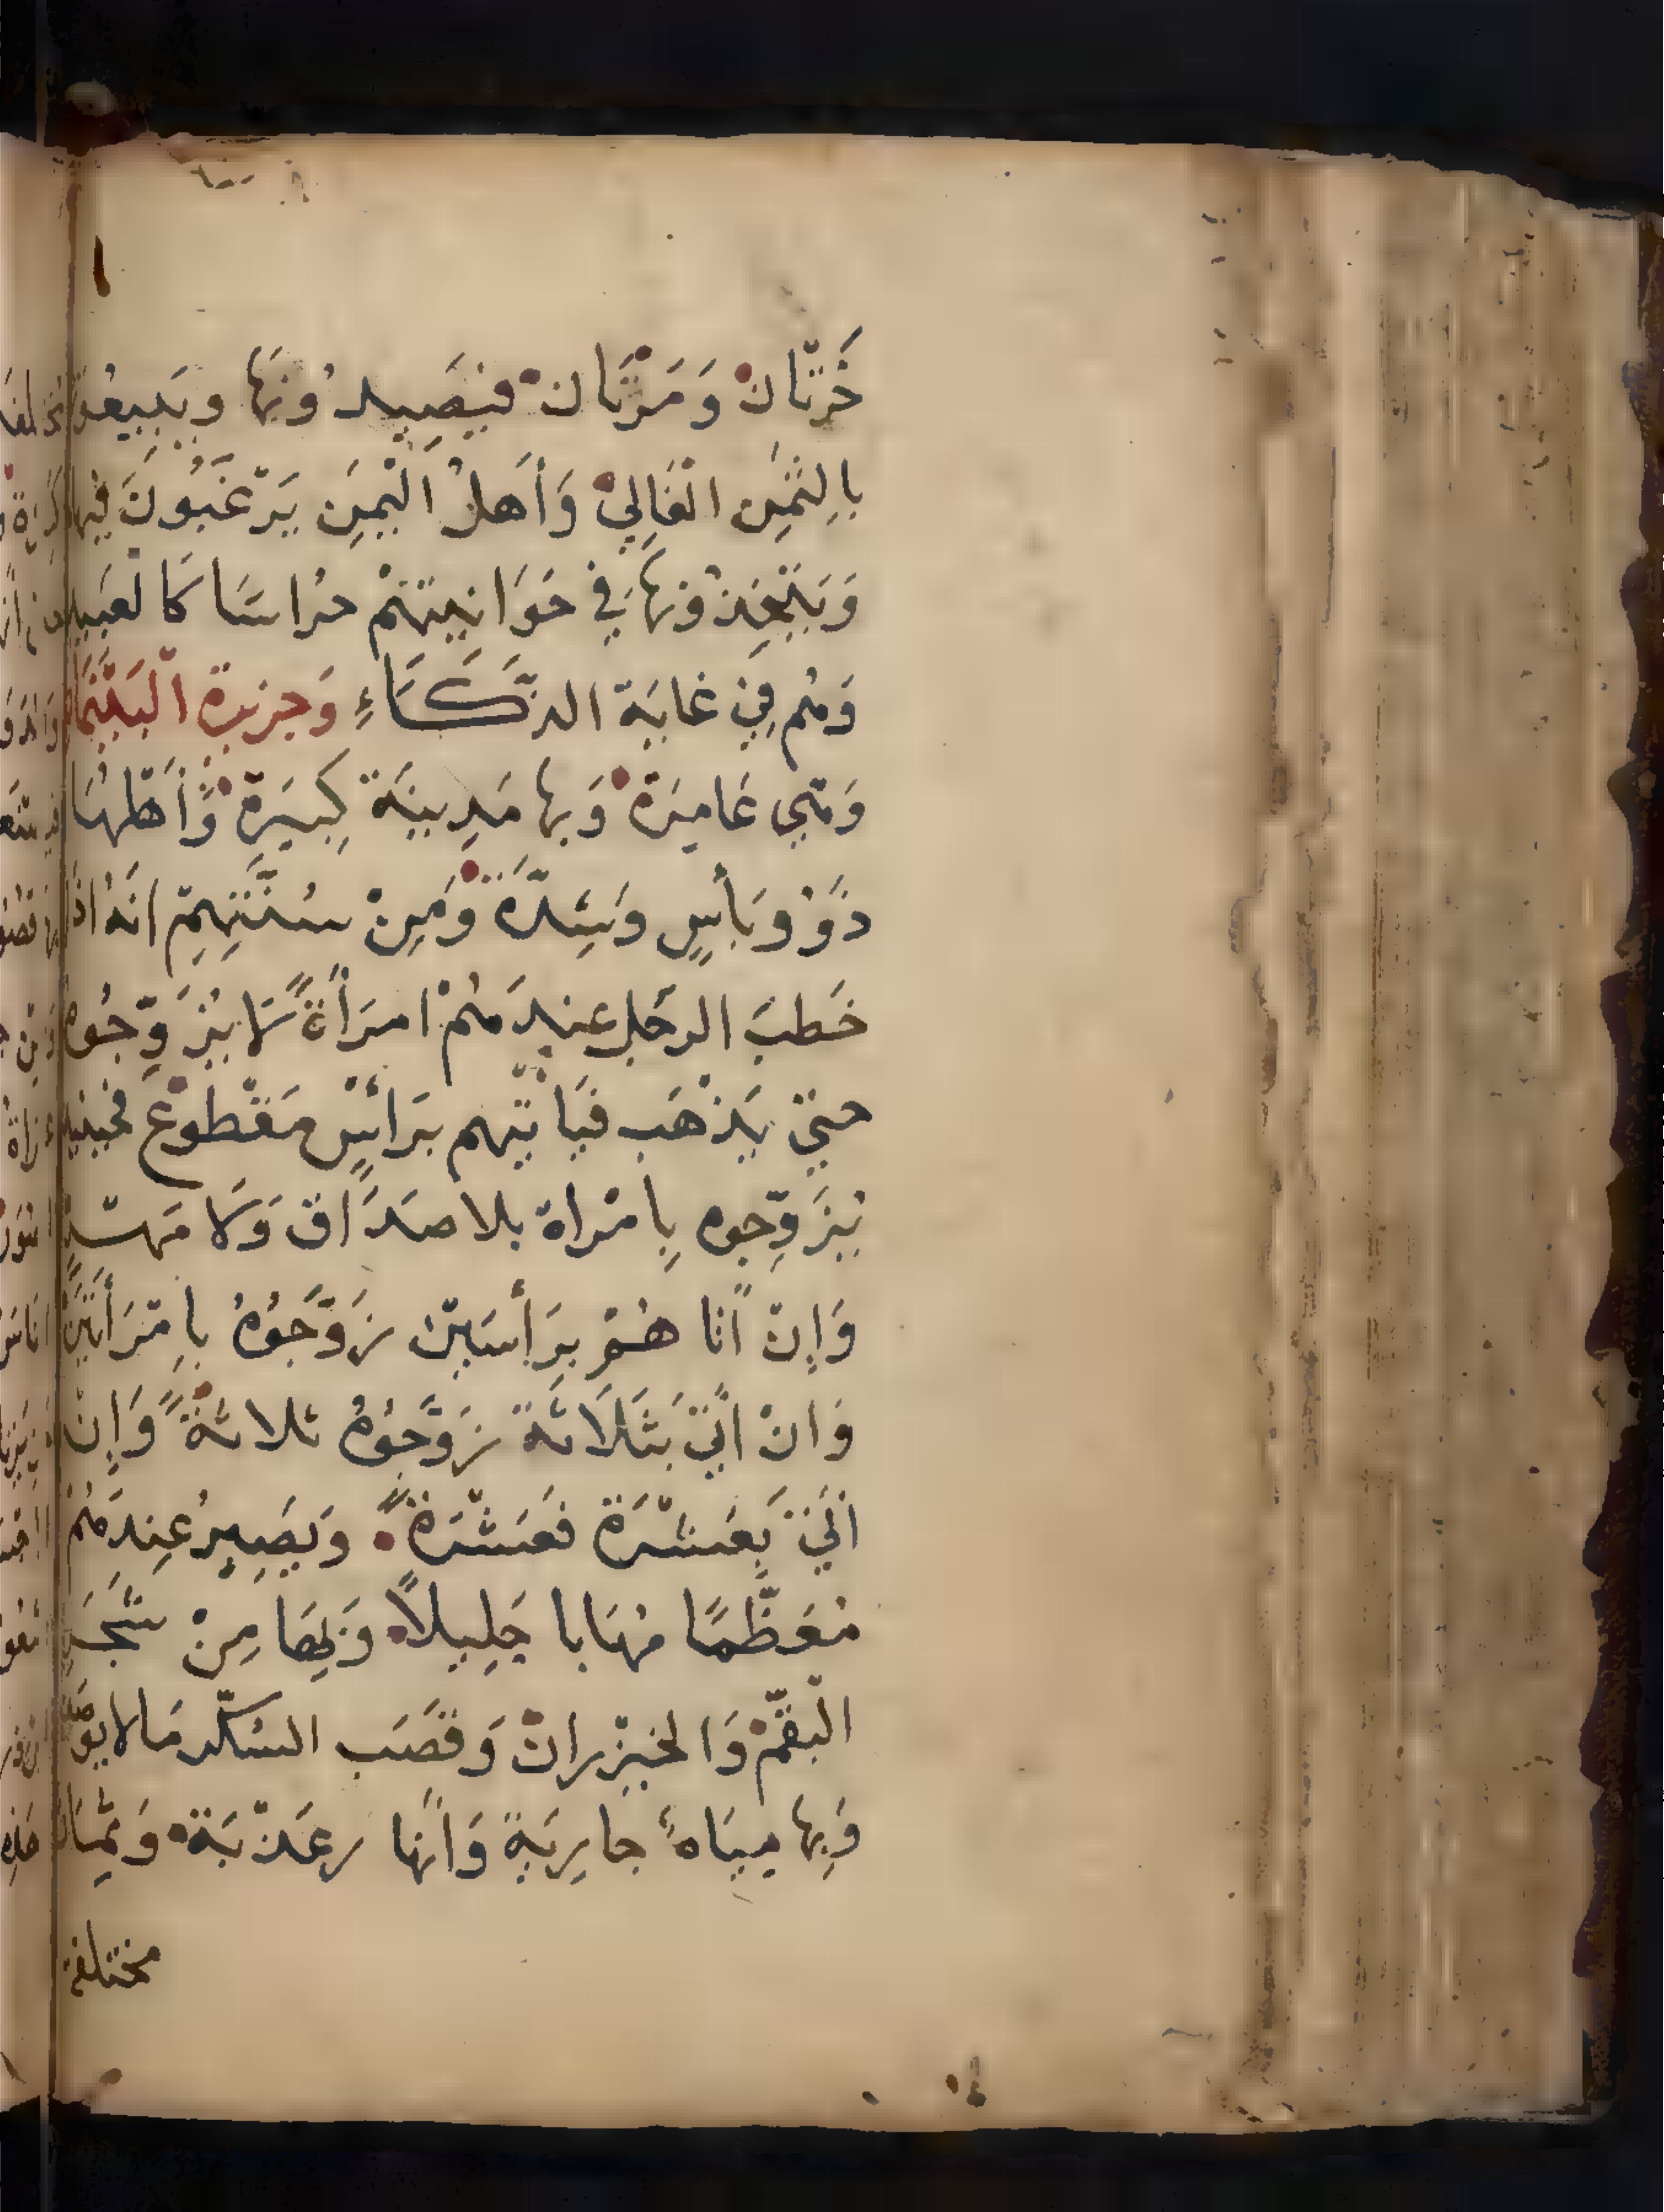 خَرتّان وَمَرْتَان فيَصِيدُونَها ويَبِيعُو
بالِثَمِن الغَالِيْ وَأَهلُ اليْمَن يَرْغَبُونَ فيها
وَيَتَّخِذْونهَا فِي حَوَانيتهُمْ حُراسًا كالعَبيد
وَهُم فِيْ غايَة الذَّكَاءِ وَجزيرة الْبَيْنَمَان
وَهِي عَامِرَة وَبها مَدِينَة كِبيَرة وَأَهْلُهَا
ذَوُوبَأسٍ وَشِدَّةَ وَمِنْ سُنَّتِهِمْ انهُ اذا
خَطبَ الرجُل عندَهُمْ امرَأةً لَا يُزَوِّجُوه
حتيّ يَذْهَب فيَأتيّهم برَأسٍ مَقْطوْع فحينيد
يُزَوِّجوه بِامْراة بلا صدَاق وَلَا مَهر
وَإِنْ أتاهُمْ بِرَأسَينْ زَوَّجَوُهُ بِامْرَأتَيَنْ
وَانْ اتيَ بَثَلَاثَة زَوَّجَوُهُ ثلاثةً وَإِنْ
اتيَ بِعَشْرَة فعَشْرَةً وَيَصِيرُ عِندَهُمْ
مُعَظَّمًا مُهَابا جَلِيلًا وَبِهَا مِنْ شَجَر
البَقَّمْ وَالخيْزران وَقَصَب السُكّر مَا لا يوصف
وَبِها مِيَاهٌ جارِيَة وَانها ر عَذْبَة وَثمار
مختلفة